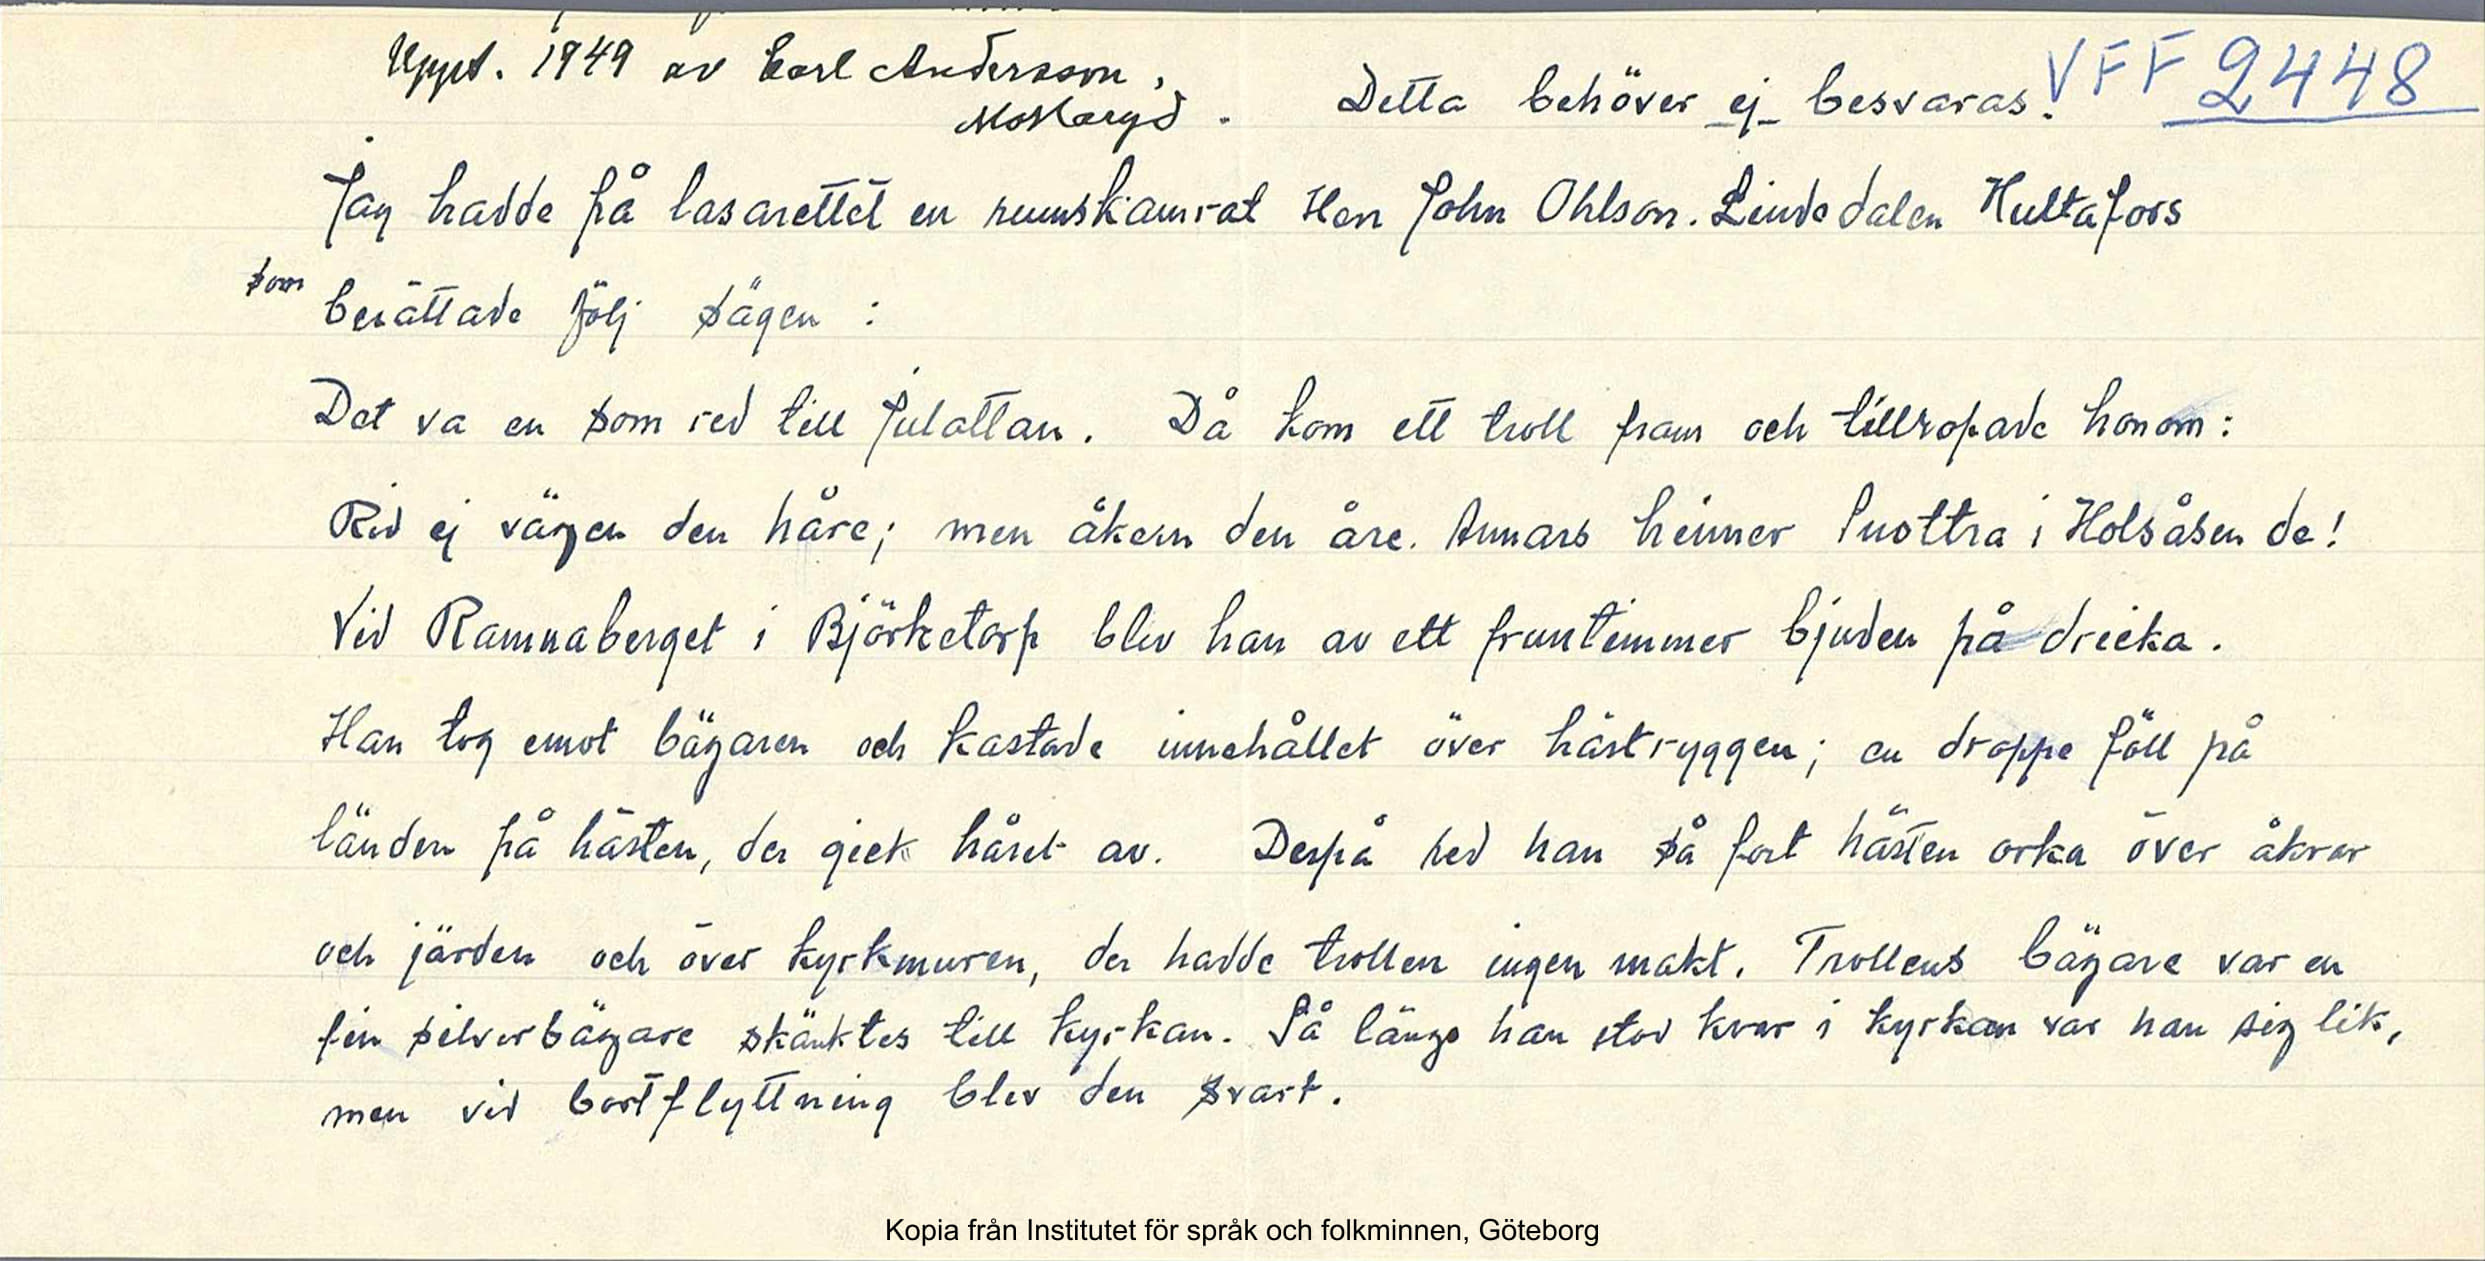 Uppt. 1949 av Carl Andersson,
Mokaryd.
Detta behöver ej besvaras!
VFF 2448
Jag hadde på lasarettet en rumskamrat Herr John Ohlson. Lindedalen Hultafors
som
berättade följ sägen :
Det va en som red till Julottan. Då kom ett troll fram och tillropade honom:
Rid ej vägen den håre; men åkern den åre. Annars hinner Snottra i Holsåsen de!
Vid Ramnaberget i Björketorp blev han av ett fruntimmer bjuden på dricka.
Han tog emot bägaren och kastade innehållet över hästryggen; en droppe föll på
länden på hästen, der gick håret av. Derpå red han så fort hästen orka över åkrar
och järden och över kyrkmuren, der hadde trollen ingen makt. Trollens bägare var en
fin silverbägare skänktes till kyrkan. Så länge han stod kvar i kyrkan var han sig lik,
men vid bortflyttning blev den svart.
Kopia från Institutet för språk och folkminnen, Göteborg